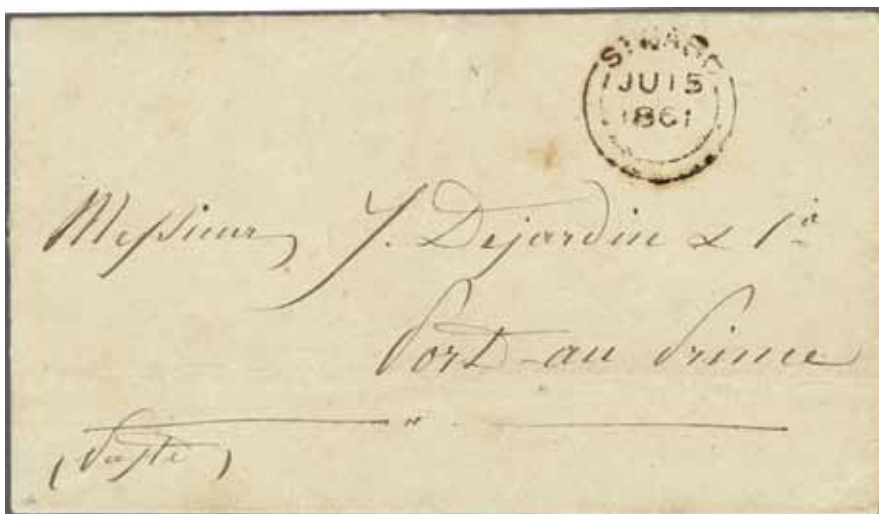 ST MARC
JU 15
1861
Messieurs J. Dejardin & Cie
Port-au Prince
(Poste)